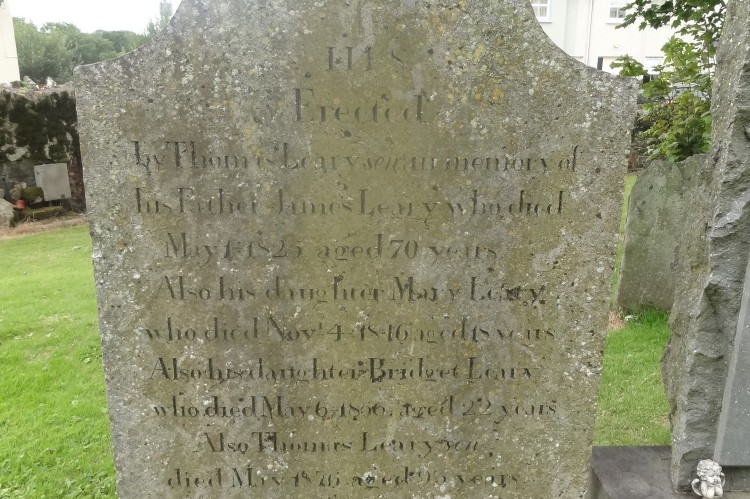 IHS
Erected
by Thomas Leary sen in memory of
his Father James Leary who died
May 1 1825 aged 70 years
Also his daughter Mary Leary
who died Nov 4 1846 aged 18 years
Also his daughter Bridget Leary
who died May 6 aged 22 years
Also Thomas Leary sen
died May 1876 aged 95 years